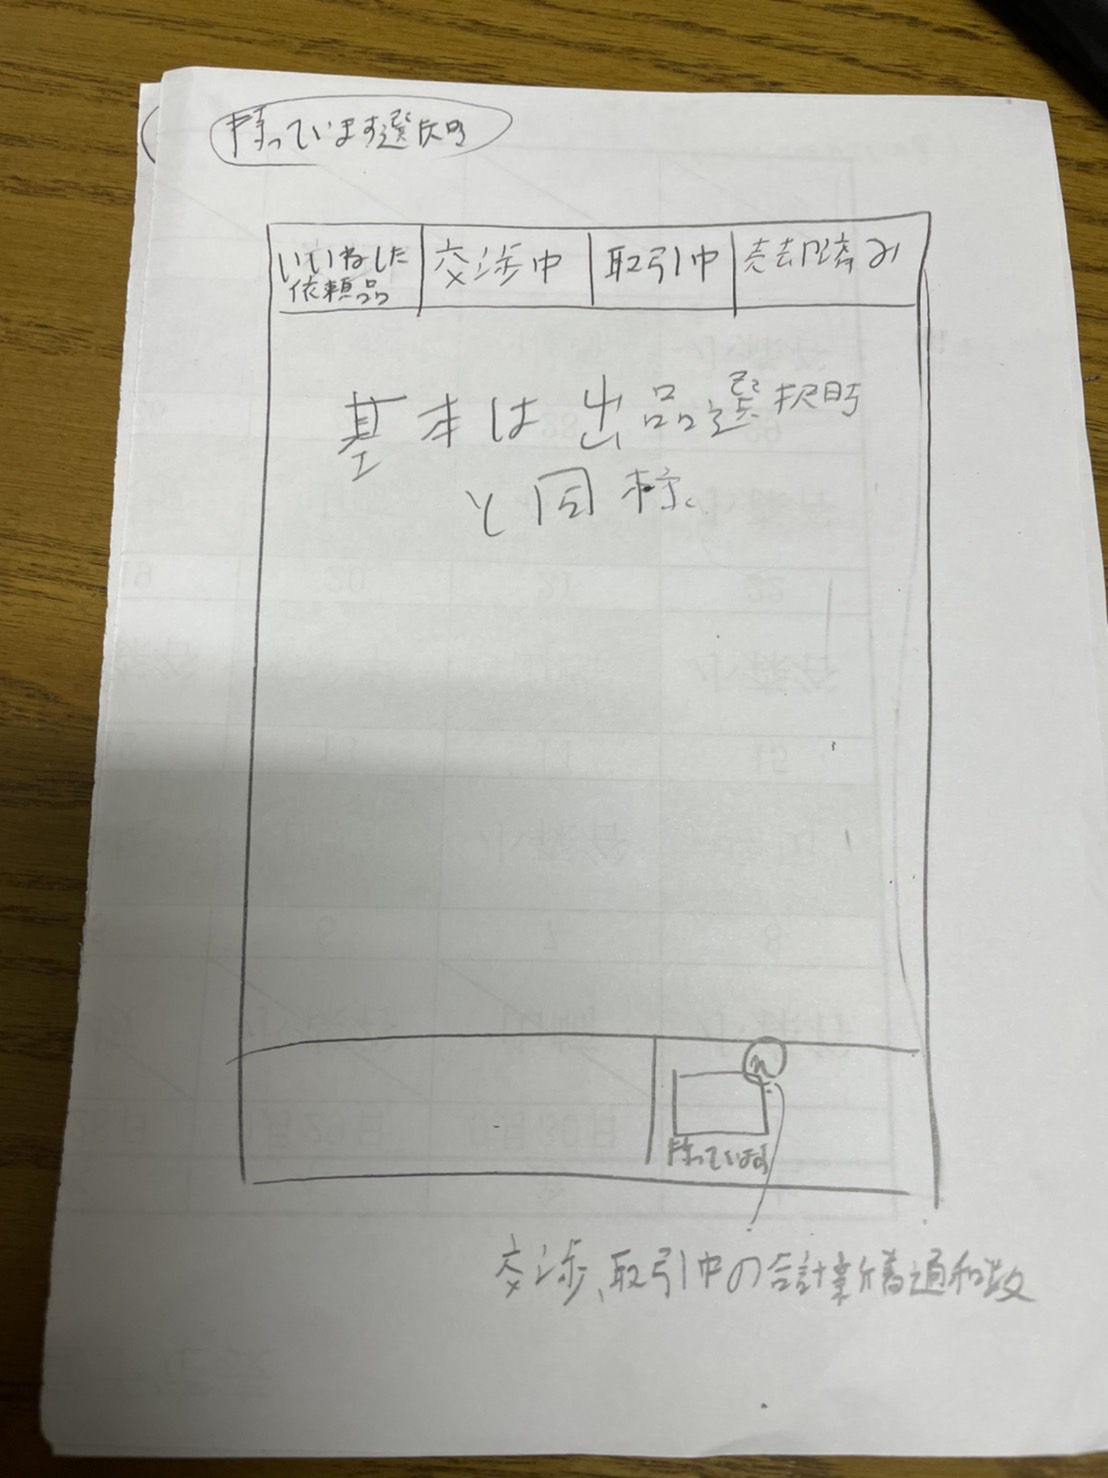 持っています選択時
いいねした
依頼品
交渉中
取引中
売却済み
基本は出品選択時
と同様。
n
持っています
交渉、取引中の合計新着通知数